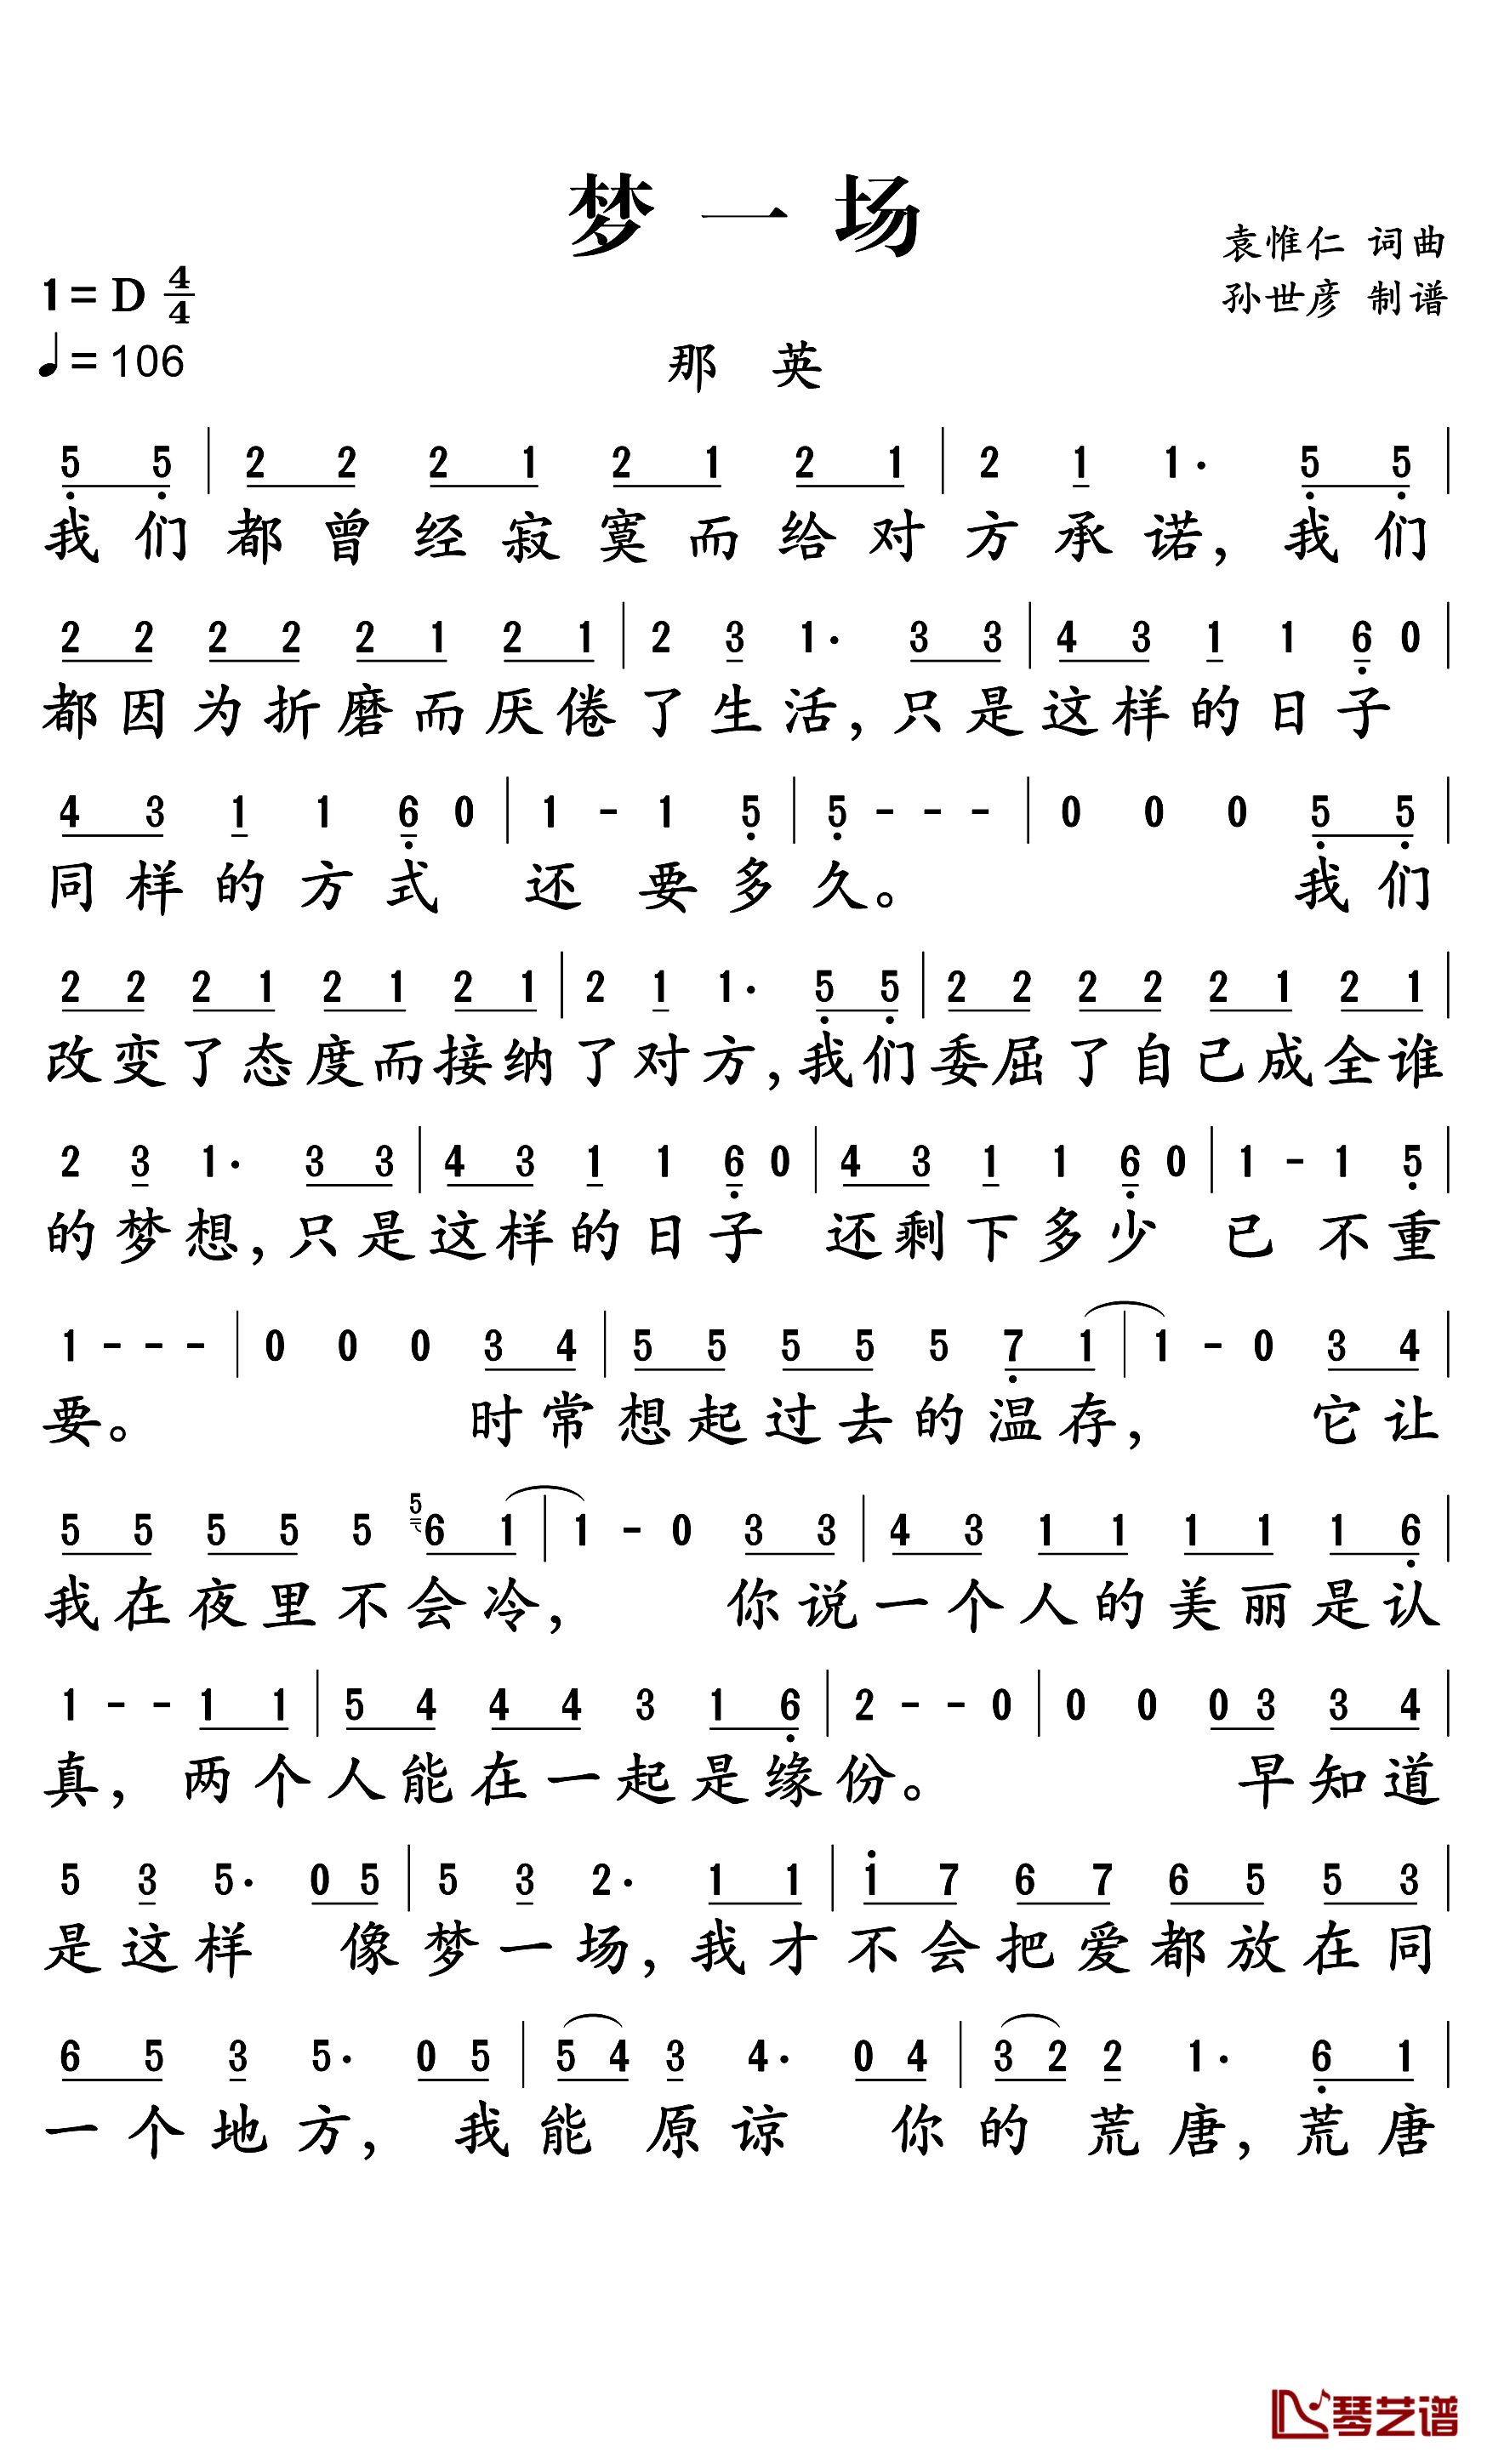 梦一场
袁惟仁 词曲
孙世彦 制谱
1=D 4/4
♩=106
那 英
5 5 | 2 2 2 1 2 1 2 1 | 2 1 1· 5 5 |
我们都曾经寂寞而给对方承诺,我们
2 2 2 2 2 1 2 1 | 2 3 1· 3 3 | 4 3 1 1 6 0 |
都因为折磨而厌倦了生活,只是这样的日子
4 3 1 1 6 0 | 1 - 1 5 | 5 - - - | 0 0 0 5 5 |
同样的方式 还要多久。 我们
2 2 2 1 2 1 2 1 | 2 1 1· 5 5 | 2 2 2 2 2 1 2 1 |
改变了态度而接纳了对方,我们委屈了自己成全谁
2 3 1· 3 3 | 4 3 1 1 6 0 | 4 3 1 1 6 0 | 1 - 1 5 |
的梦想,只是这样的日子 还剩下多少 已不重
1 - - - | 0 0 0 3 4 | 5 5 5 5 5 7 1 | 1 - 0 3 4 |
要。 时常想起过去的温存, 它让
5 5 5 5 5 5 6 1 | 1 - 0 3 3 | 4 3 1 1 1 1 1 6 |
我在夜里不会冷, 你说一个人的美丽是认
1 - - 1 1 | 5 4 4 4 3 1 6 | 2 - - 0 | 0 0 0 3 3 4 |
真, 两个人能在一起是缘份。 早知道
5 3 5· 0 5 | 5 3 2· 1 1 | 1 7 6 7 6 5 5 3 |
是这样 像梦一场,我才不会把爱都放在同
6 5 3 5· 0 5 | 5 4 3 4· 0 4 | 3 2 2 1· 6 1 |
一个地方, 我能原谅 你的荒唐,荒唐
琴艺谱